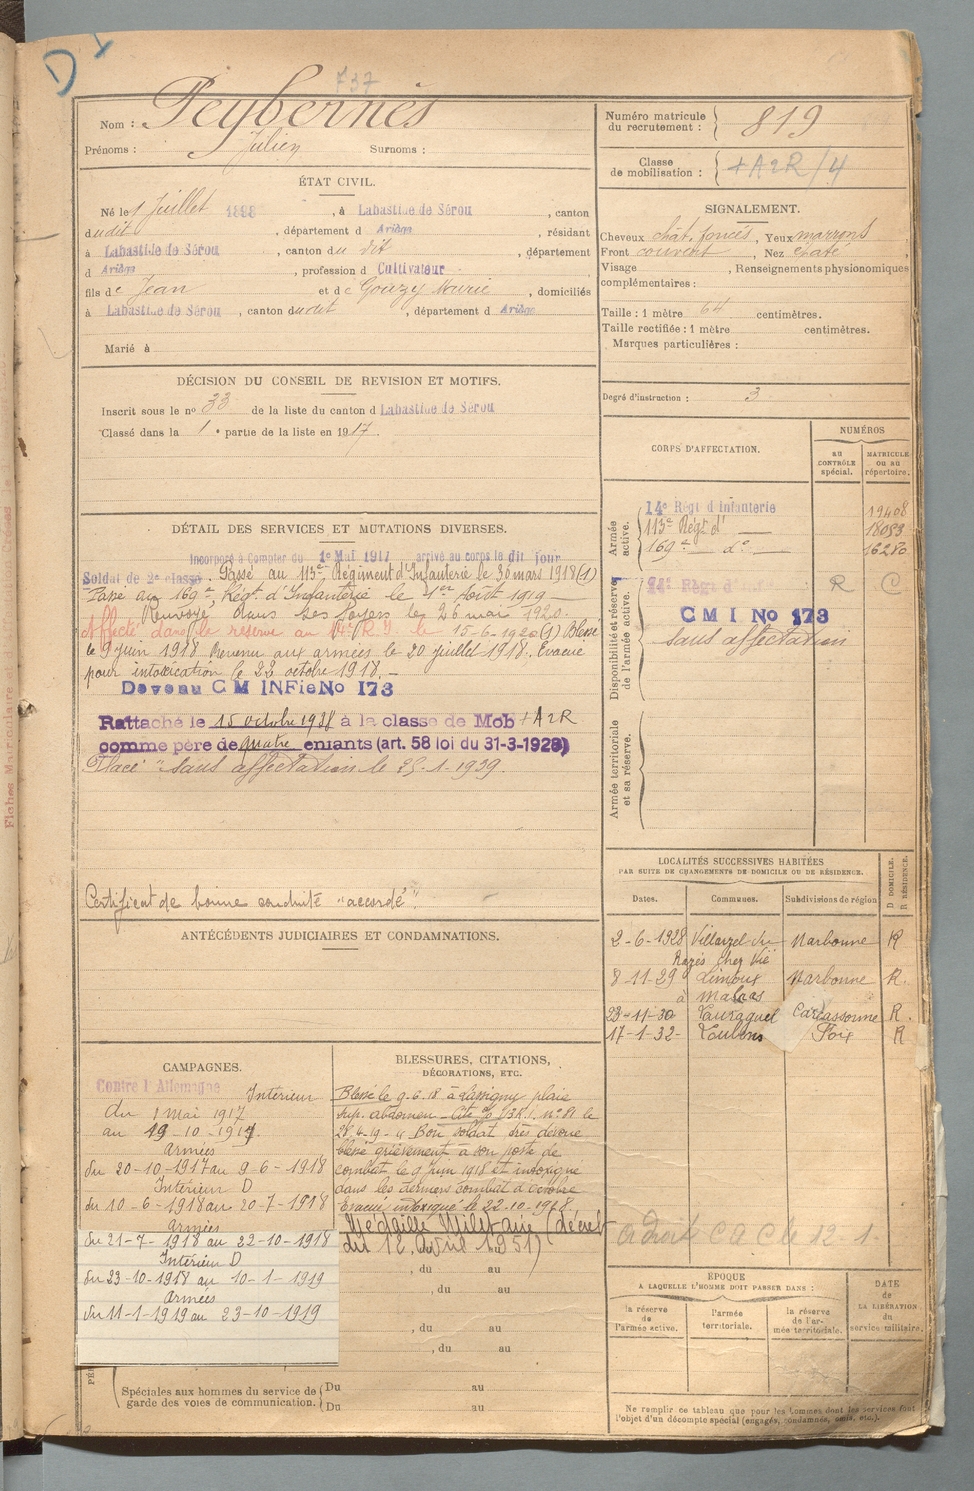 D
737
Nom : Peybernès
Prénoms : Julien Surnoms :
Numéro matricule
du recrutement : 819
Classe
de mobilisation : +A2R/4
ÉTAT CIVIL.
Né le 1 Juillet 1898, à Labastide de Sérou, canton
dudit, département d Ariège, résidant
à Labastide de Sérou, canton du dit, département
d Ariège, profession d Cultivateur
fils de Jean et de Gouzy Marie, domiciliés
à Labastide de Sérou, canton dudit, département d Ariège
Marié à
SIGNALEMENT.
Cheveux chât. foncés, Yeux marrons
Front couvert, Nez épaté,
Visage , Renseignements physionomiques
complémentaires :
Taille : 1 mètre 64 centimètres.
Taille rectifiée : 1 mètre centimètres.
Marques particulières :
Degré d'instruction : 3
DÉCISION DU CONSEIL DE REVISION ET MOTIFS.
Inscrit sous le no 33 de la liste du canton d Labastide de Sérou
Classé dans la 1e partie de la liste en 1917.
CORPS D'AFFECTATION.
NUMÉROS
au
CONTRÔLE
spécial.
MATRICULE
ou au
répertoire.
Armée
active.
14e Régt d'Infanterie 19408
113e Régt d° 18093
169e d° 16280
Disponibilité et réserve
de l'armée active.
R C
C M I No 173
sans affectation
Armée territoriale
et sa réserve.
DÉTAIL DES SERVICES ET MUTATIONS DIVERSES.
Incorporé à Compter du 1e Mai 1917 arrivé au corps le dit jour
Soldat de 2e classe. Passé au 113e Régiment d'Infanterie le 30 mars 1918 (1)
Passé au 169e Régt d'Infanterie le 1er Août 1919
Renvoyé dans ses foyers le 26 mai 1920.
Affecté dans le réserve au 14e R.I. le 15-6-1920 (1) Blessé
le 9 juin 1918 Revenu aux armées le 20 juillet 1918. Évacué
pour intoxication le 22 octobre 1918.-
Devenu C M INFie No 173
Rattaché le 15 octobre 1938 à la classe de Mob +A2R
comme père de quatre enfants (art. 58 loi du 31-3-1928)
Placé "sans affectation le 25-1-1939.
Certificat de bonne conduite "accordé".
ANTÉCÉDENTS JUDICIAIRES ET CONDAMNATIONS.
LOCALITÉS SUCCESSIVES HABITÉES
PAR SUITE DE CHANGEMENTS DE DOMICILE OU DE RÉSIDENCE.
D DOMICILE.
R RÉSIDENCE.
Dates. Communes. Subdivisions de région
2-6-1928 Villarzel du Narbonne R
Razès chez Vié
8-11-29 Limoux Narbonne R.
à Malras
23-11-30 Tauragnel Carcassonne R.
17-1-32- Foix R
CAMPAGNES.
Contre l'Allemagne
Intérieur
du 1 Mai 1917
au 19-10-1917
Armées
du 20-10-1917 au 9-6-1918
Intérieur D
du 10-6-1918 au 20-7-1918
Armées
du 21-7-1918 au 22-10-1918
Intérieur D
du 23-10-1918 au 10-1-1919
Armées
du 11-1-1919 au 23-10-1919
BLESSURES, CITATIONS,
DÉCORATIONS, ETC.
Blessé le 9-6-18 à Lassigny plaie
sup. abdomen - Cité n° 81 le
28-4-19 - "Bon soldat très dévoué
blessé grièvement à son poste de
combat le 9 juin 1918 et intoxiqué
dans les derniers combat d'octobre
Évacué intoxiqué le 22.10.1918.
Médaille Militaire (décret
du 12 Avril 1951)
, du au
, du au
, du au
, du au
Spéciales aux hommes du service de
garde des voies de communication.
Du au
Du au
a droit C A C le 12 1.
ÉPOQUE
A LAQUELLE L'HOMME DOIT PASSER DANS :
la réserve
de
l'armée active.
l'armée
territoriale.
la réserve
de l'ar-
mée territoriale.
DATE
de
LA LIBÉRATION
du
service militaire.
Ne remplir ce tableau que pour les hommes dont les services font
l'objet d'un décompte spécial (engagés, condamnés, omis, etc.).